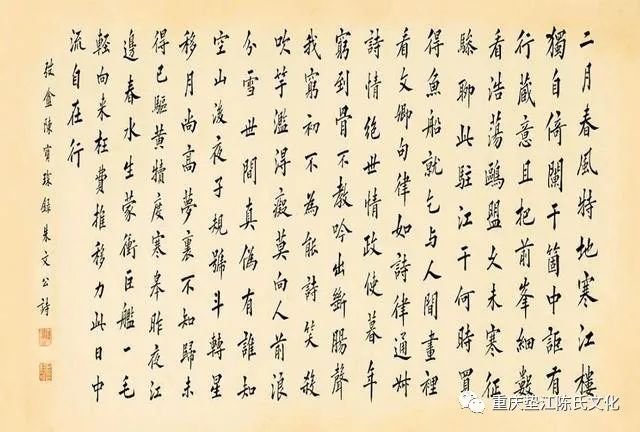 二月春風特地寒江樓
獨自倚闌干箇中詎有
行藏意且把前峯細數
看浩蕩鷗盟久未寒征
驂聊此駐江干何時買
得魚船就乞与人間畫裡
看文卿句律如詩律通叔
詩情絕世情政使暮年
窮到骨不教吟出斷腸聲
我窮初不為能詩笑殺
吹竽濫得癡莫向人前浪
分雪世間真偽有誰知
空山後夜子規號斗轉星
移月尚高夢裏不知歸未
得已驅黃犢度寒皋昨夜江
邊春水生蒙衝巨艦一毛
輕向來枉費推移力此日中
流自在行
弢盦陳寶琛錄朱文公詩
重庆垫江陈氏文化